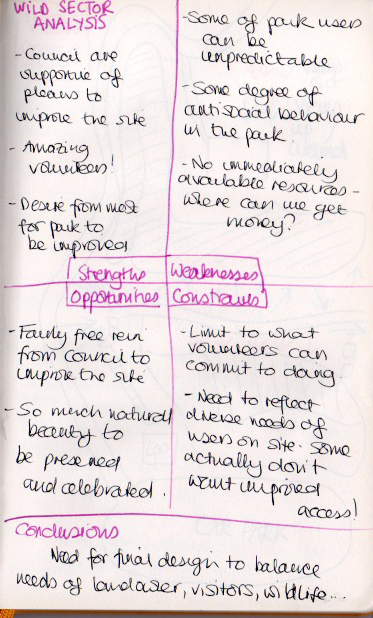 WILD SECTOR
ANALYSIS
- Council are
supportive of
plans to
improve the site
- Amazing
volunteers!
- Desire from most
for park to
be improved
- Some of park users
can be
unpredictable
- Some degree of
antisocial behaviour
in the park.
- No immediately
available resources -
where can we get
money?
Strengths
Weaknesses
Opportunities
Constraints
- Fairly free rein
from Council to
improve the site
- So much natural
beauty to
be preserved
and celebrated.
- Limit to what
volunteers can
commit to doing.
- Need to reflect
diverse needs of
users on site. Some
actually don't
want improved
access!
Conclusions
Need for final design to balance
needs of landowner, visitors, wildlife...